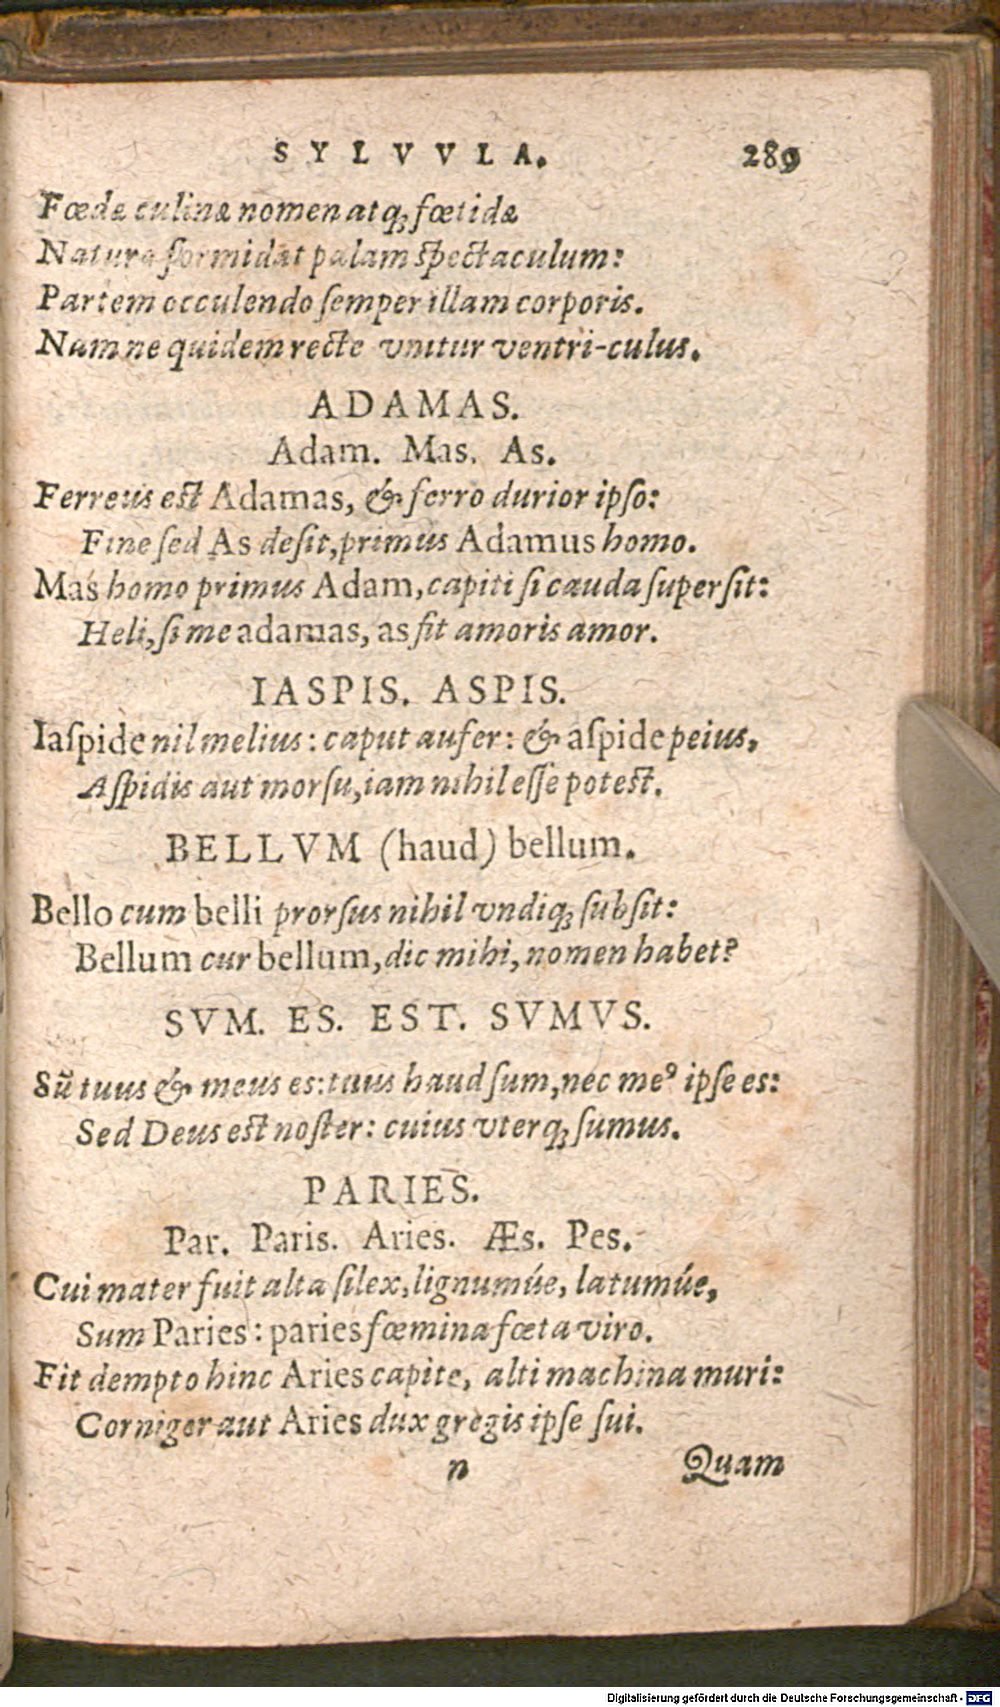 SYLVVLA. 289
Fœdæ culinæ nomen atq; fœtidæ
Natura formidat palam spectaculum:
Partem occulendo semper illam corporis.
Nam ne quidem recte vnitur ventri-culus.
ADAMAS.
Adam. Mas. As.
Ferreus est Adamas, & ferro durior ipso:
Fine sed As desit, primus Adamus homo.
Mas homo primus Adam, capiti si cauda supersit:
Heli, si me adamas, as fit amoris amor.
IASPIS. ASPIS.
Iaspide nil melius: caput aufer: & aspide peius,
Aspidis aut morsu, iam nihil esse potest.
BELLVM (haud) bellum.
Bello cum belli prorsus nihil vndiq; subsit:
Bellum cur bellum, dic mihi, nomen habet?
SVM. ES. EST. SVMVS.
Sũ tuus & meus es: tuus haud sum, nec meꝰ ipse es:
Sed Deus est noster: cuius vterq; sumus.
PARIES.
Par. Paris. Aries. Æs. Pes.
Cui mater fuit alta silex, lignumúe, latumúe,
Sum Paries: paries fœmina fœta viro.
Fit dempto hinc Aries capite, alti machina muri:
Corniger aut Aries dux gregis ipse sui.
n Quam
Digitalisierung gefördert durch die Deutsche Forschungsgemeinschaft - DFG